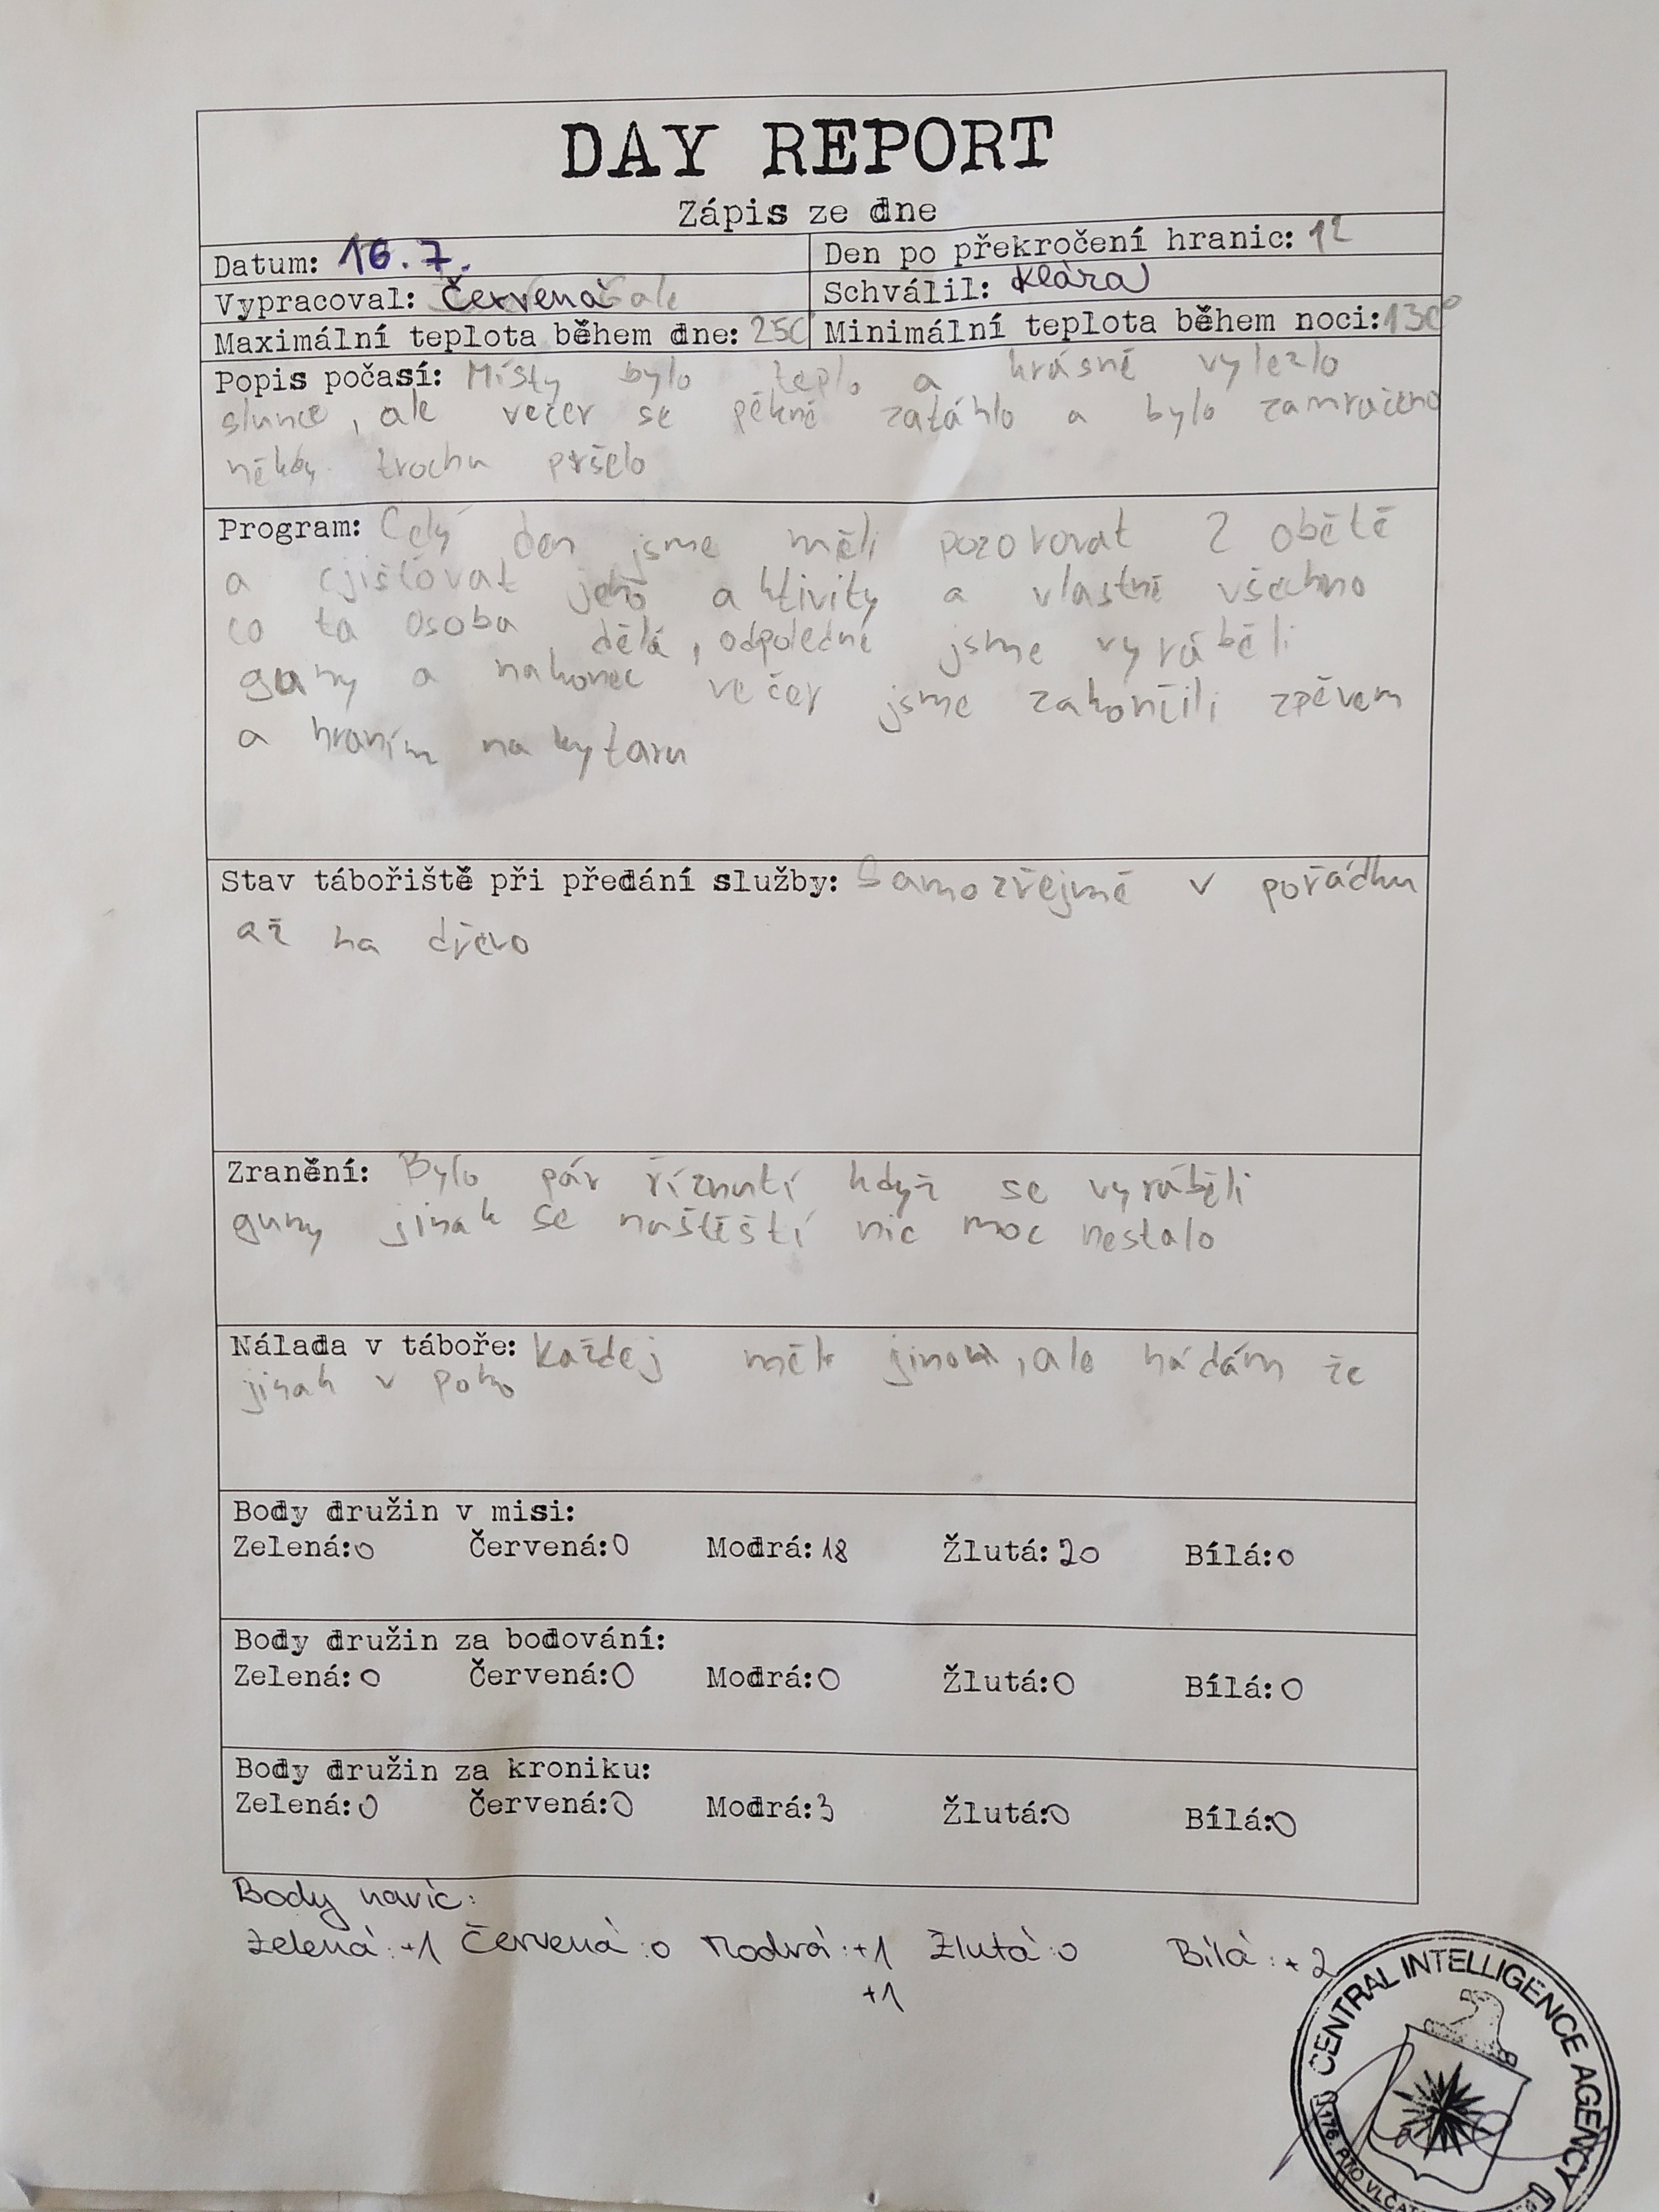 DAY REPORT
Zápis ze dne
Datum: 16.7.
Den po překročení hranic: 12
Vypracoval: Červená
Schválil: Klára
Maximální teplota během dne: 25C
Minimální teplota během noci: 13C°
Popis počasí: Místy bylo teplo a krásně vylezlo
slunce, ale večer se pěkně zatáhlo a bylo zamračeno
někdy trochu pršelo
Program: Celý den jsme měli pozorovat 2 obětě
a cjišťovat jeho aktivity a vlastně všechno
co ta osoba dělá, odpoledne jsme vyráběli
guny a nakonec večer jsme zakončili zpěvem
a hraním na kytaru
Stav tábořiště při předání služby: Samozřejmě v pořádku
až na dřevo
Zranění: Bylo pár říznutí když se vyráběli
guny jinak se naštěstí nic moc nestalo
Nálada v táboře: Každej měl jinou, ale hádám že
jinak v poho
Body družin v misi:
Zelená: 0 Červená: 0 Modrá: 18 Žlutá: 20 Bílá: 0
Body družin za bodování:
Zelená: 0 Červená: 0 Modrá: 0 Žlutá: 0 Bílá: 0
Body družin za kroniku:
Zelená: 0 Červená: 0 Modrá: 3 Žlutá: 0 Bílá: 0
Body navíc:
Zelená: +1 Červená: 0 Modrá: +1 Žlutá: 0 Bílá: +2
+1
CENTRAL INTELLIGENCE AGENCY
176. PTO